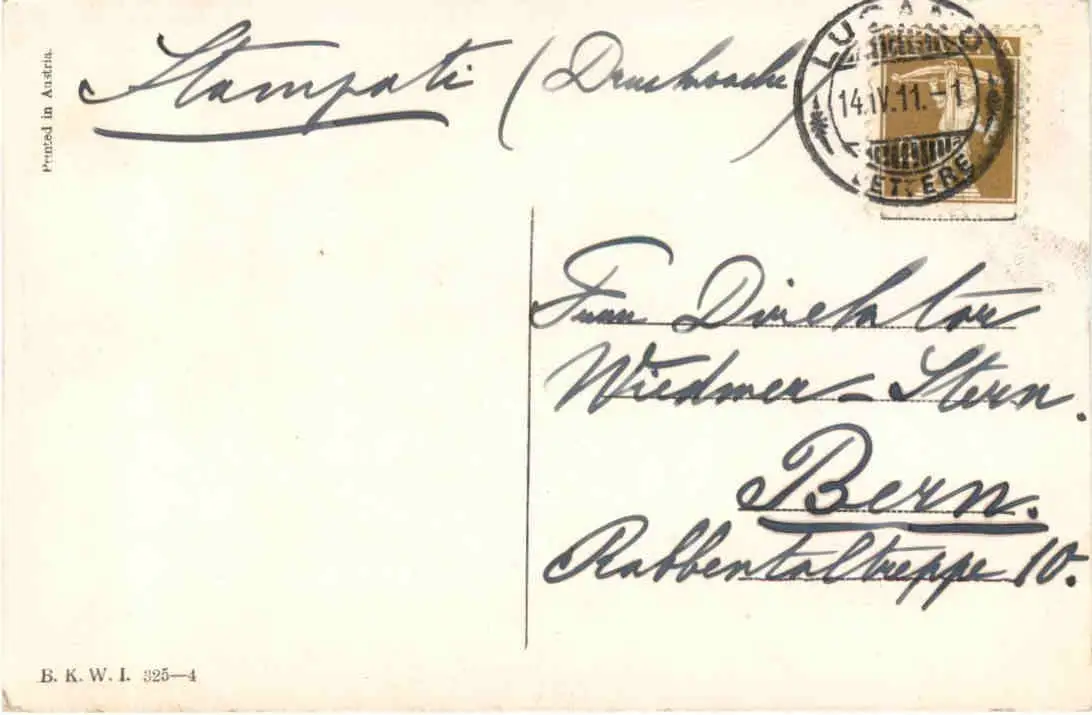 Printed in Austria.
Stampati (Drucksache)
LUGANO
14.IV.11.-1
LETTERE
A
Frau Direktor
Wiedmer-Stern.
Bern.
Rabbentaltreppe 10.
B. K. W. I. 325—4